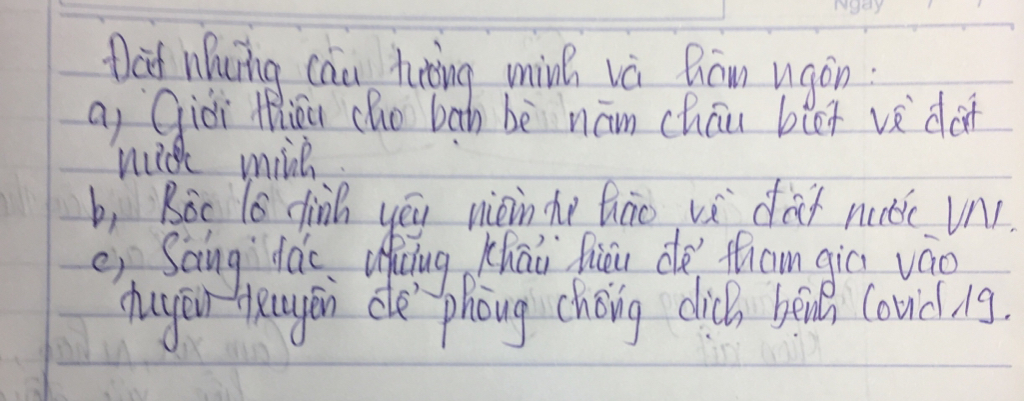 Ngày
Đặt những câu tường minh và hàm ngôn:
a, Giới thiệu cho bạn bè năm châu biết về đất
nước mình.
b, Bộc lộ tình yêu niềm tự hào về đất nước VN.
c, Sáng tác những khẩu hiệu để tham gia vào
tuyên truyền để phòng chống dịch bệnh Covid 19.